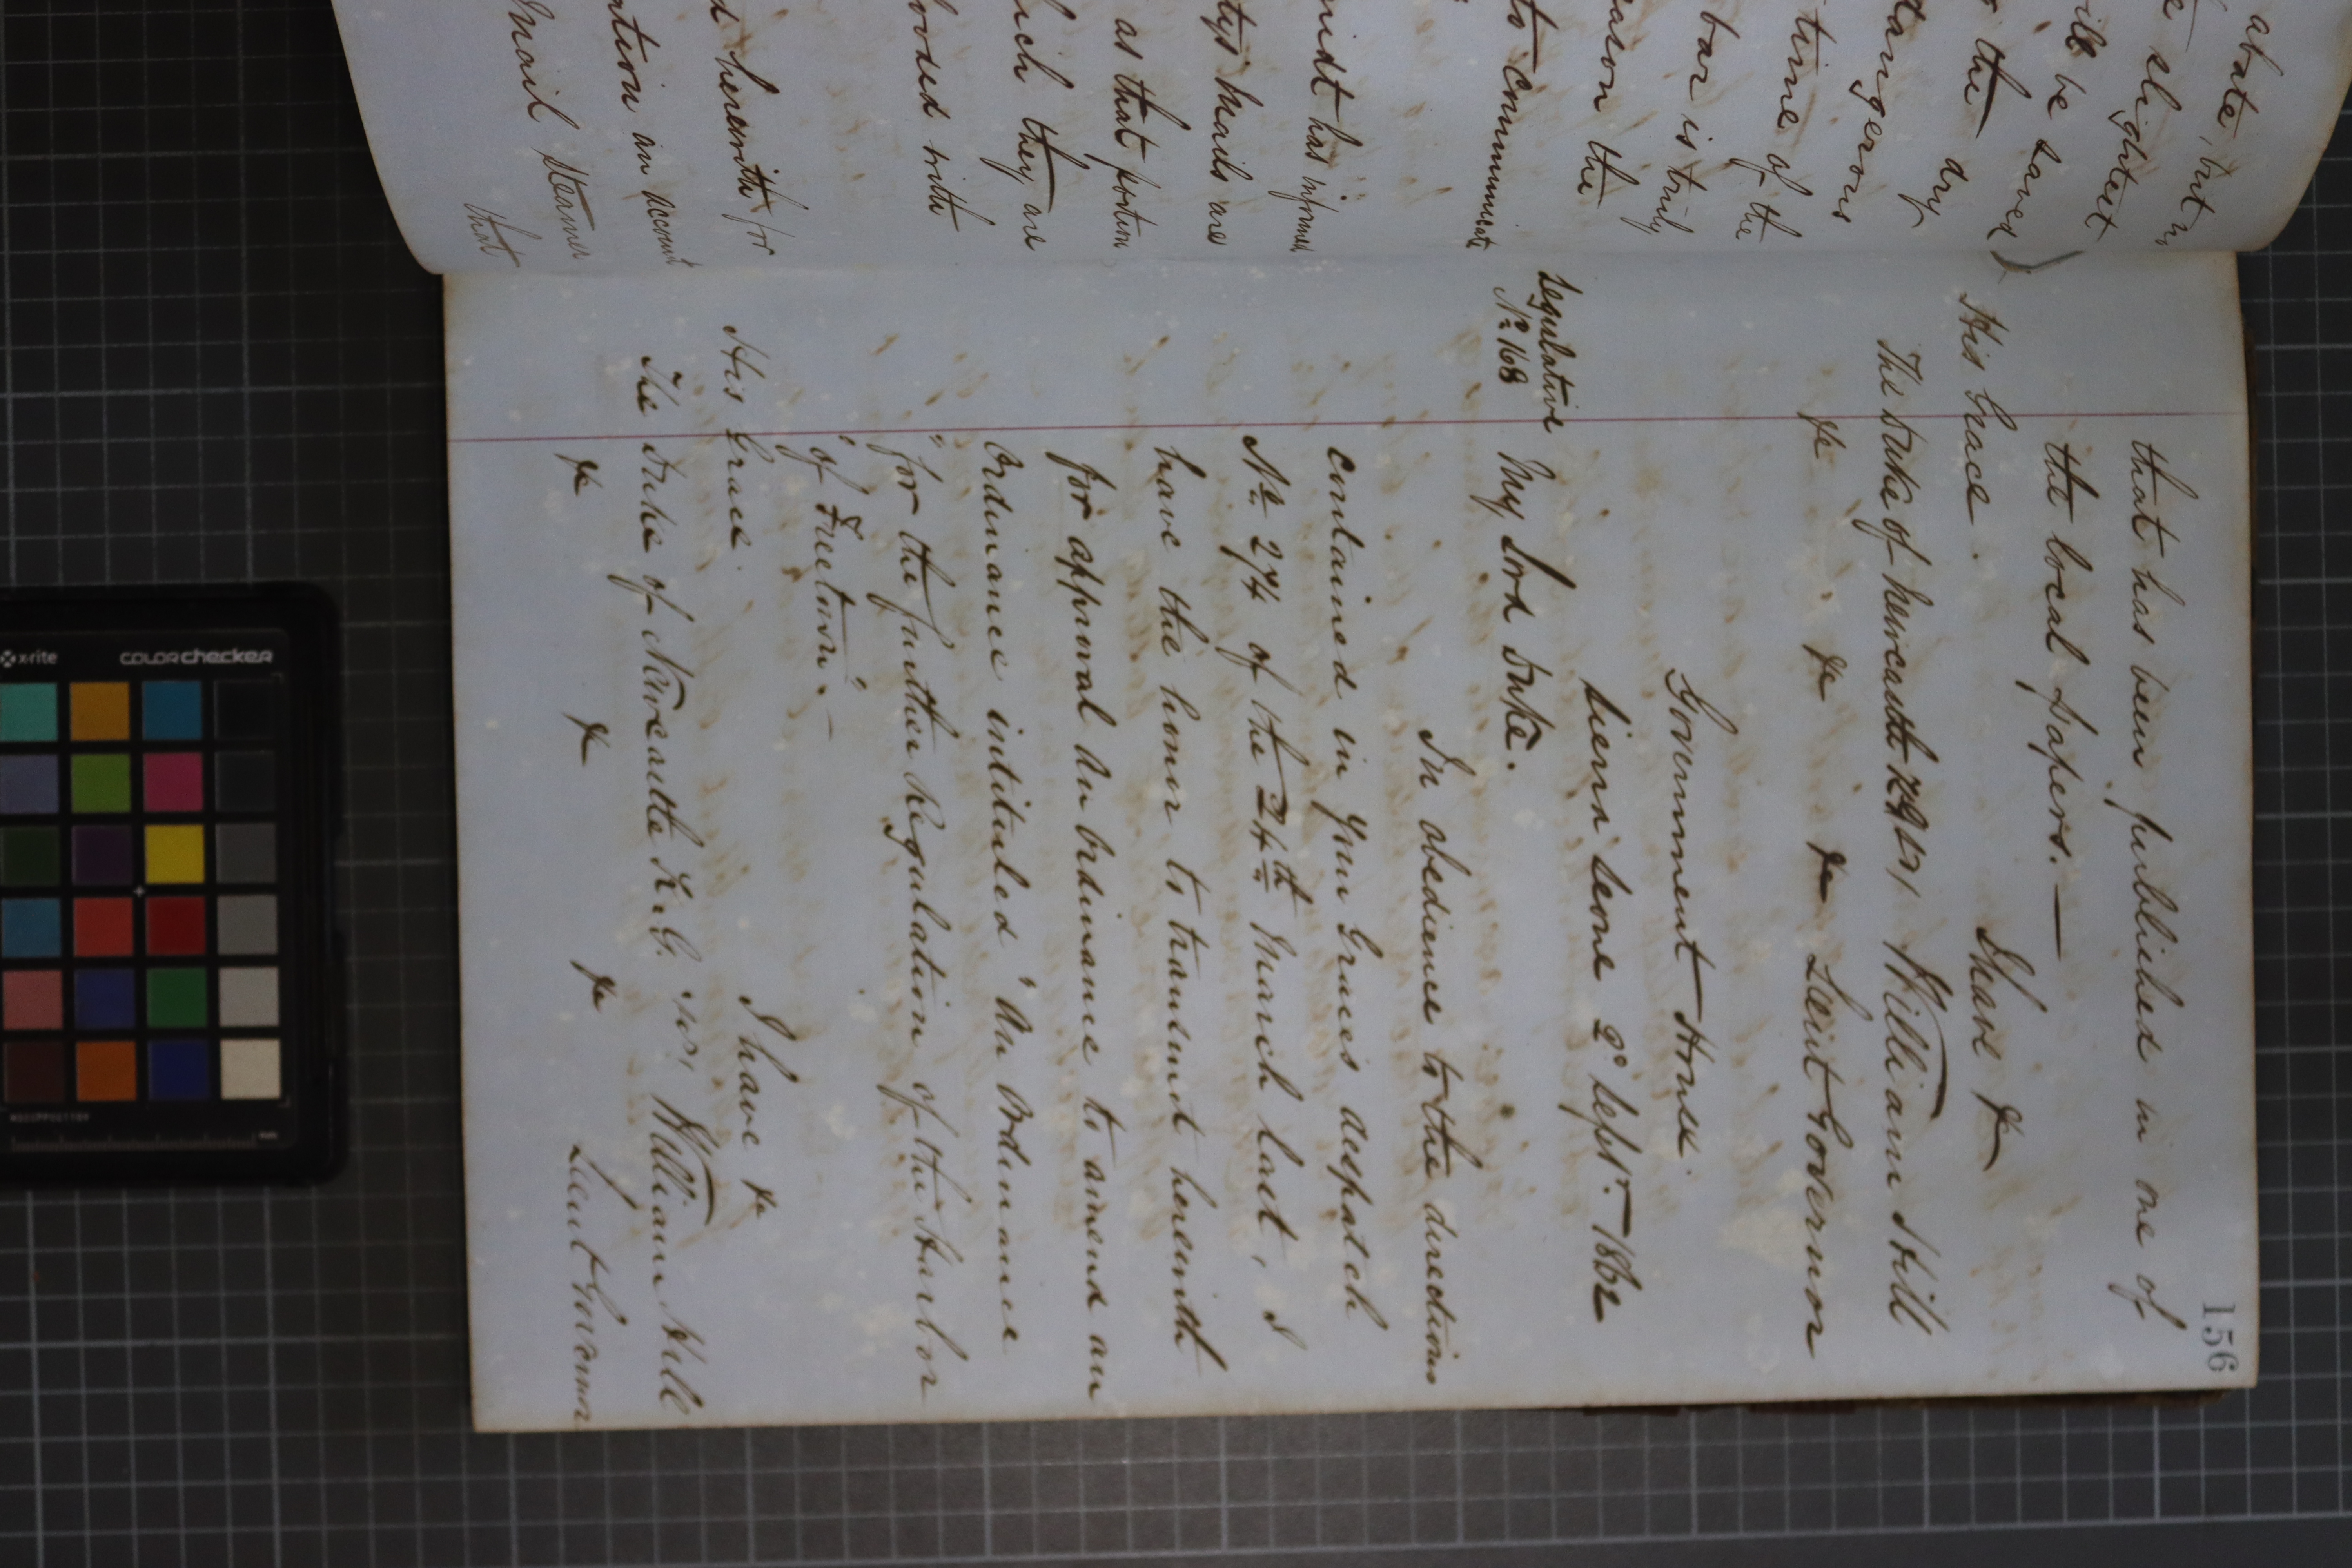 abate, but
slightest
will be saved
the dry
tangerous
time of the
bar is truly
eason the
to communicate
midt has informed
tys mails are
as that portion
ich they are
ooded with
d herewith for
ation an account
Mail Steamer
that
156
that has been published in one of
the local papers.—
His Grace. I have &c
The Duke of Newcastle William Hill
&c &c &c Lieut Governor
Government House.
Sierra Leone 2d Sept. 1862
Legislative
No 168
My Lord Duke.
In obedience to the directions
contained in Your Graces despatch
No 274 of the 24th March last, I
have the honor to transmit herewith
for approval An Ordinance to amend an
Ordinance intituled "An Ordinance
"for the further Regulation of the Harbor
"of Freetown".—
His Grace. I have &c
The Duke of Newcastle K.G. William Hill
&c &c &c Lieut Governor
x-rite colorchecker